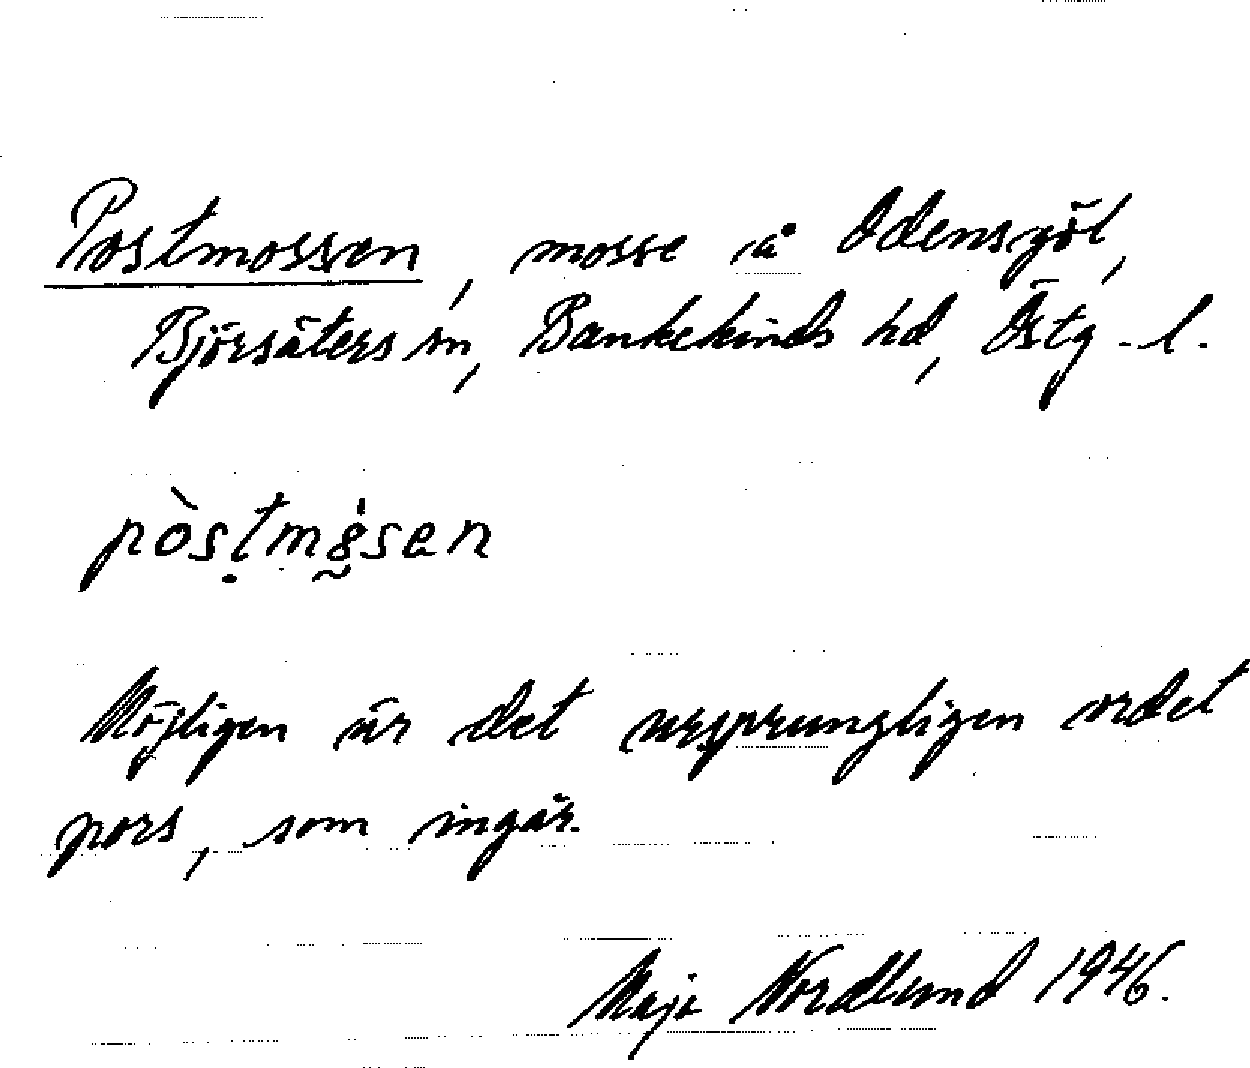 Postmossen, mosse å Odensgöl,
Björsäters sn, Bankekinds hd, Östg.-l.
pòstmỏsen
Möjligen är det ursprungligen ordet
pors, som ingår.
Maja Nordlund 1946.